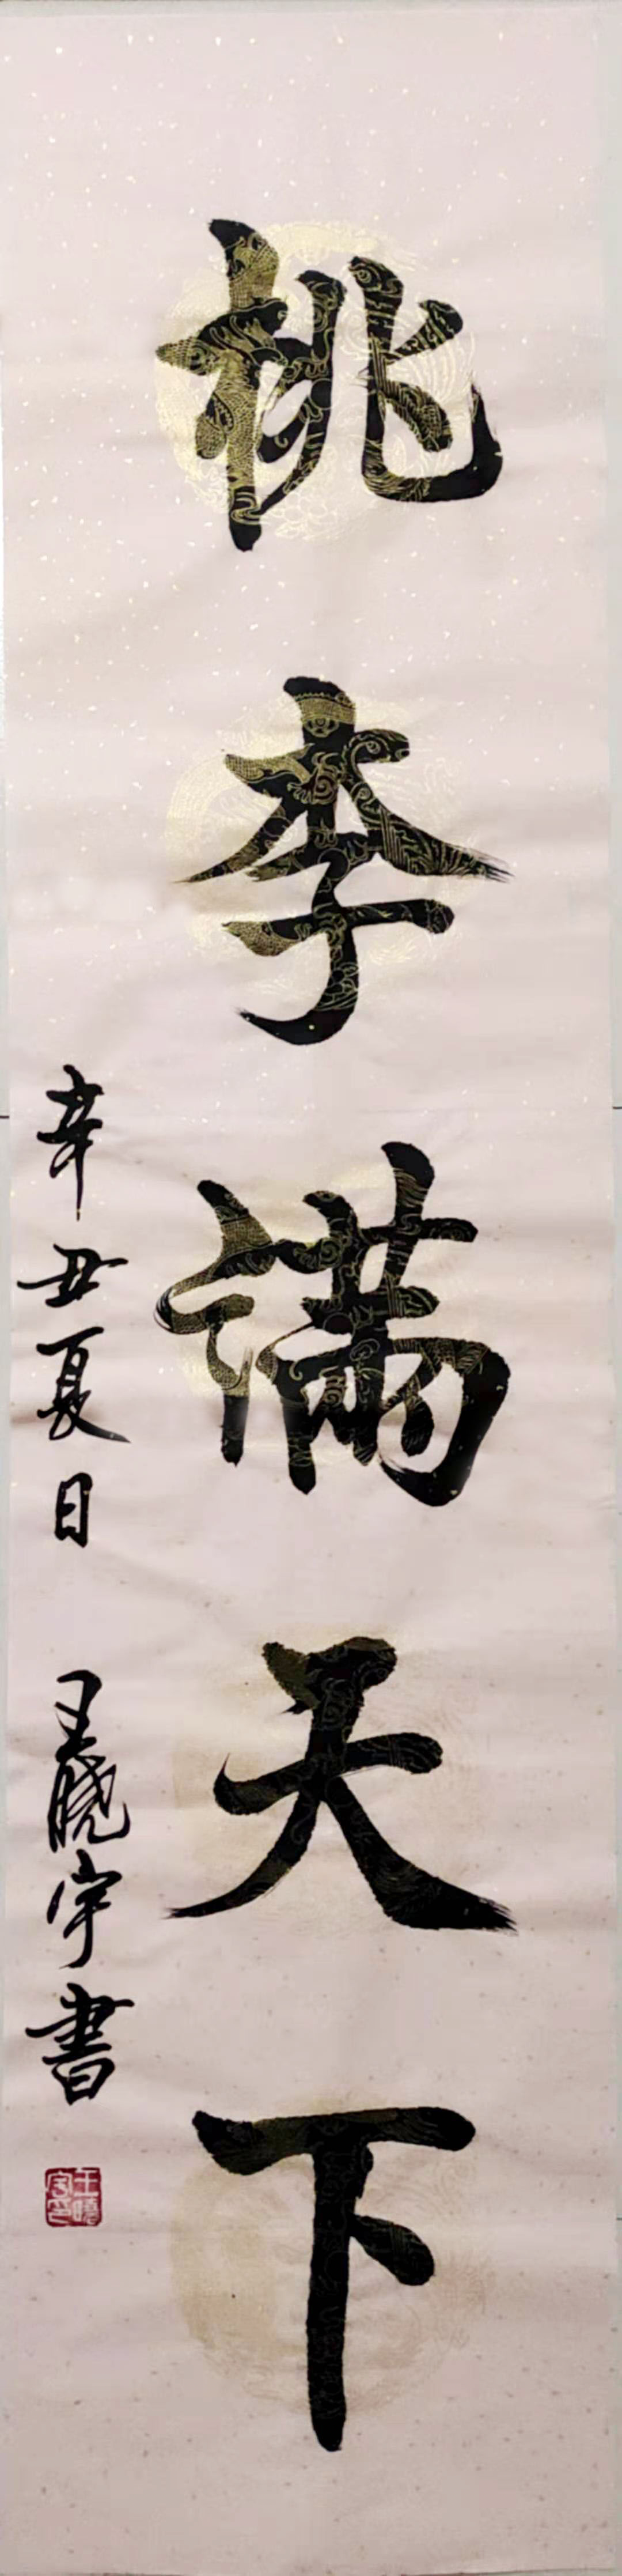 桃李满天下
辛丑夏日 王晓宇書
王曉宇印